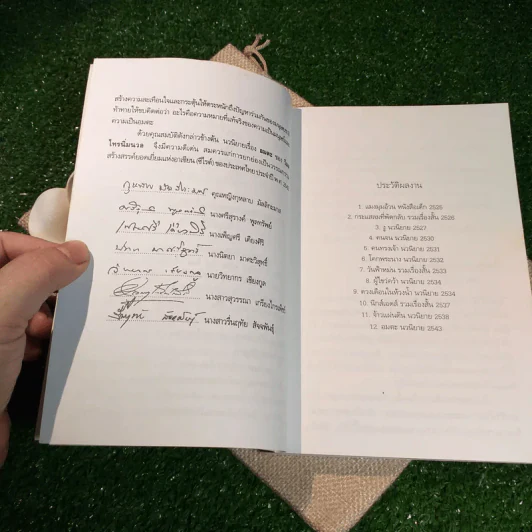 สร้างความสะเทือนใจและกระตุ้นให้ตระหนักถึงปัญหาร่วมกันของมนุษยชาติ
ท้าทายให้ขบคิดต่อว่า อะไรคือความหมายที่แท้จริงของความเป็นมนุษย์และ
ความเป็นอมตะ
ด้วยคุณสมบัติดังกล่าวข้างต้น นวนิยายเรื่อง อมตะ ของ วิมล
ไทรนิ่มนวล จึงมีความดีเด่น สมควรแก่การยกย่องเป็นวรรณกรรม
สร้างสรรค์ยอดเยี่ยมแห่งอาเซียน (ซีไรต์) ของประเทศไทย ประจำปี
คุณหญิงกุหลาบ มัลลิกะมาส
นางศรีสุรางค์ พูลทรัพย์
นางเพ็ญศรี เคียงศิริ
นางนิตยา มาศะวิสุทธิ์
นายวิทยากร เชียงกูล
นางสาวสุวรรณา เกรียงไกรเพ็ชร์
นางสาวรื่นฤทัย สัจจพันธุ์
ประวัติผลงาน
1. แมงมุมอ้วน หนังสือเด็ก 2526
2. กระแสลมที่พัดกลับ รวมเรื่องสั้น 2526
3. งู นวนิยาย 2527
4. คนจน นวนิยาย 2530
5. คนทรงเจ้า นวนิยาย 2531
6. โคกพระนาง นวนิยาย 2532
7. วันฟ้าหม่น รวมเรื่องสั้น 2533
8. ผู้ไขว่คว้า นวนิยาย 2534
9. ดวงเดือนในห้วงน้ำ นวนิยาย 2534
10. นิกส์เอดส์ รวมเรื่องสั้น 2537
11. จ้าวแผ่นดิน นวนิยาย 2538
12. อมตะ นวนิยาย 2543